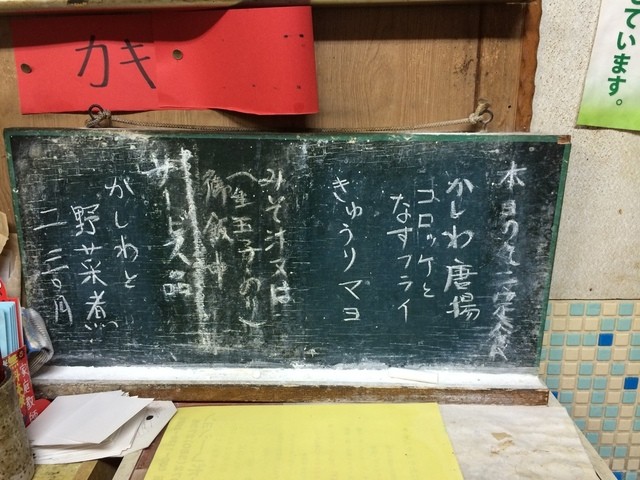 カキ
ています。
本日の 定食
かしわ唐揚
コロッケと
なすフライ
きゅうりマヨ
みそ汁又は
(生玉子、のり)
御飯中
サービス品
かしわと
野菜煮
二三〇円